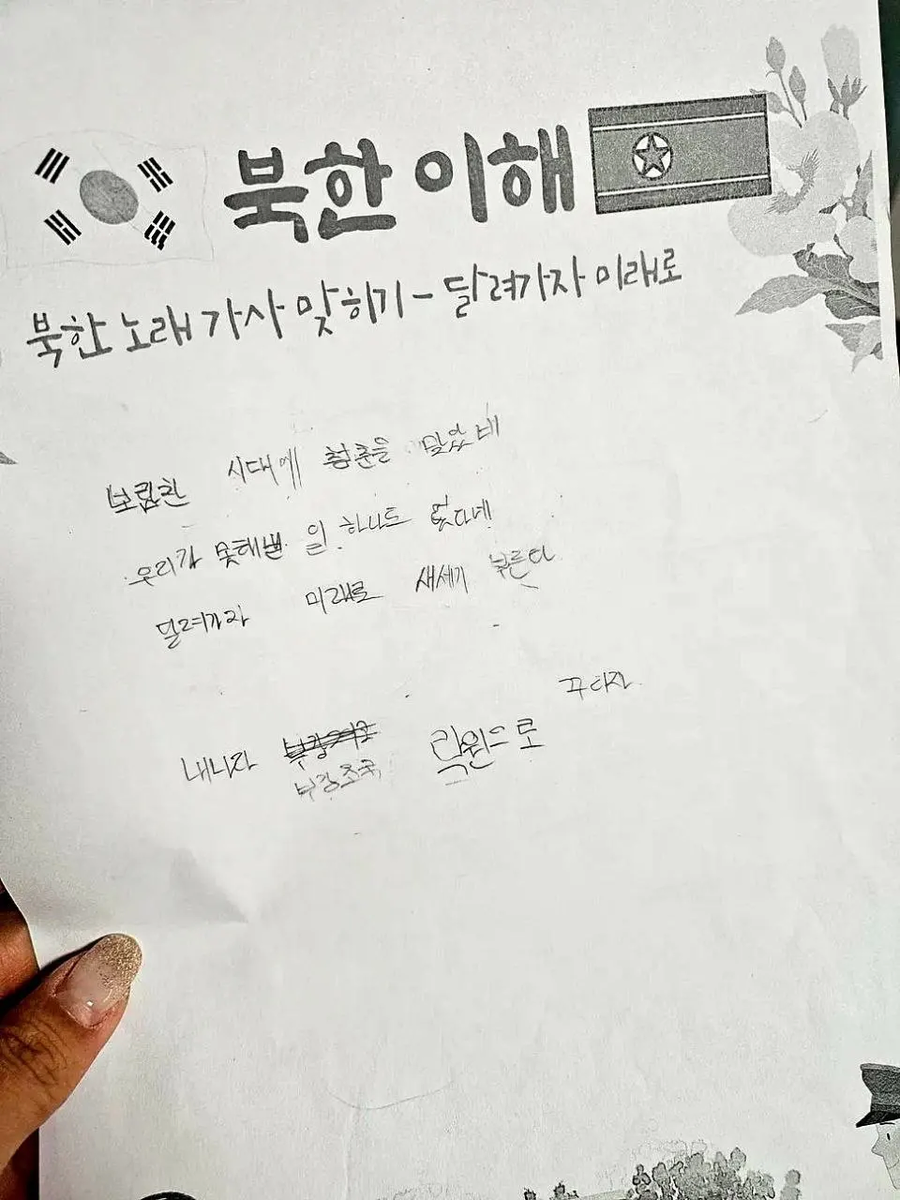 북한 이해
북한 노래 가사 맞히기 - 달려가자 미래로
보람찬 시대에 청춘을 맡았네
우리가 못해낼 일 하나도 없다네
달려가자 미래로 새세기 부른다
꾸리자
내나라 부강조국 락원으로